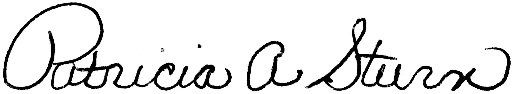 Patricia A Stern